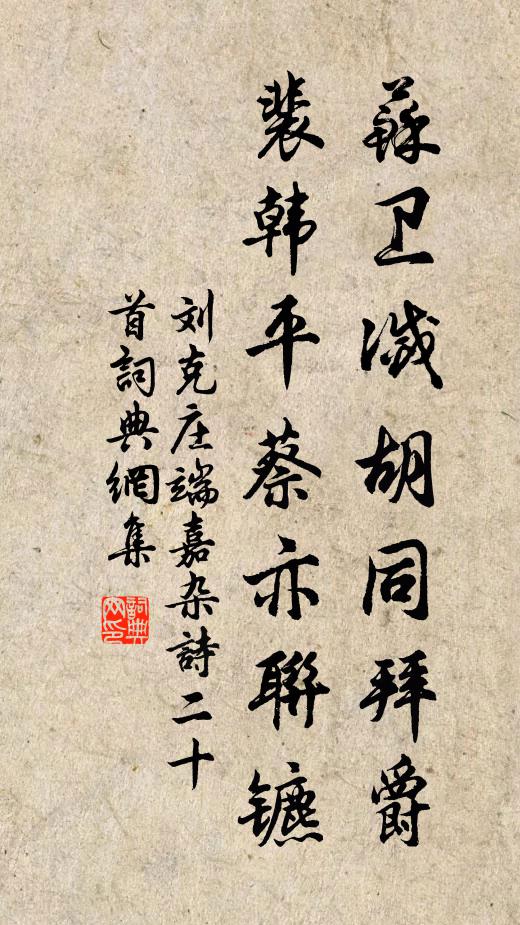 蘇卫滅胡同拜爵
裴韩平蔡亦聯镳
刘克庄端嘉杂詩二十
首詞典網集
詞典
网印